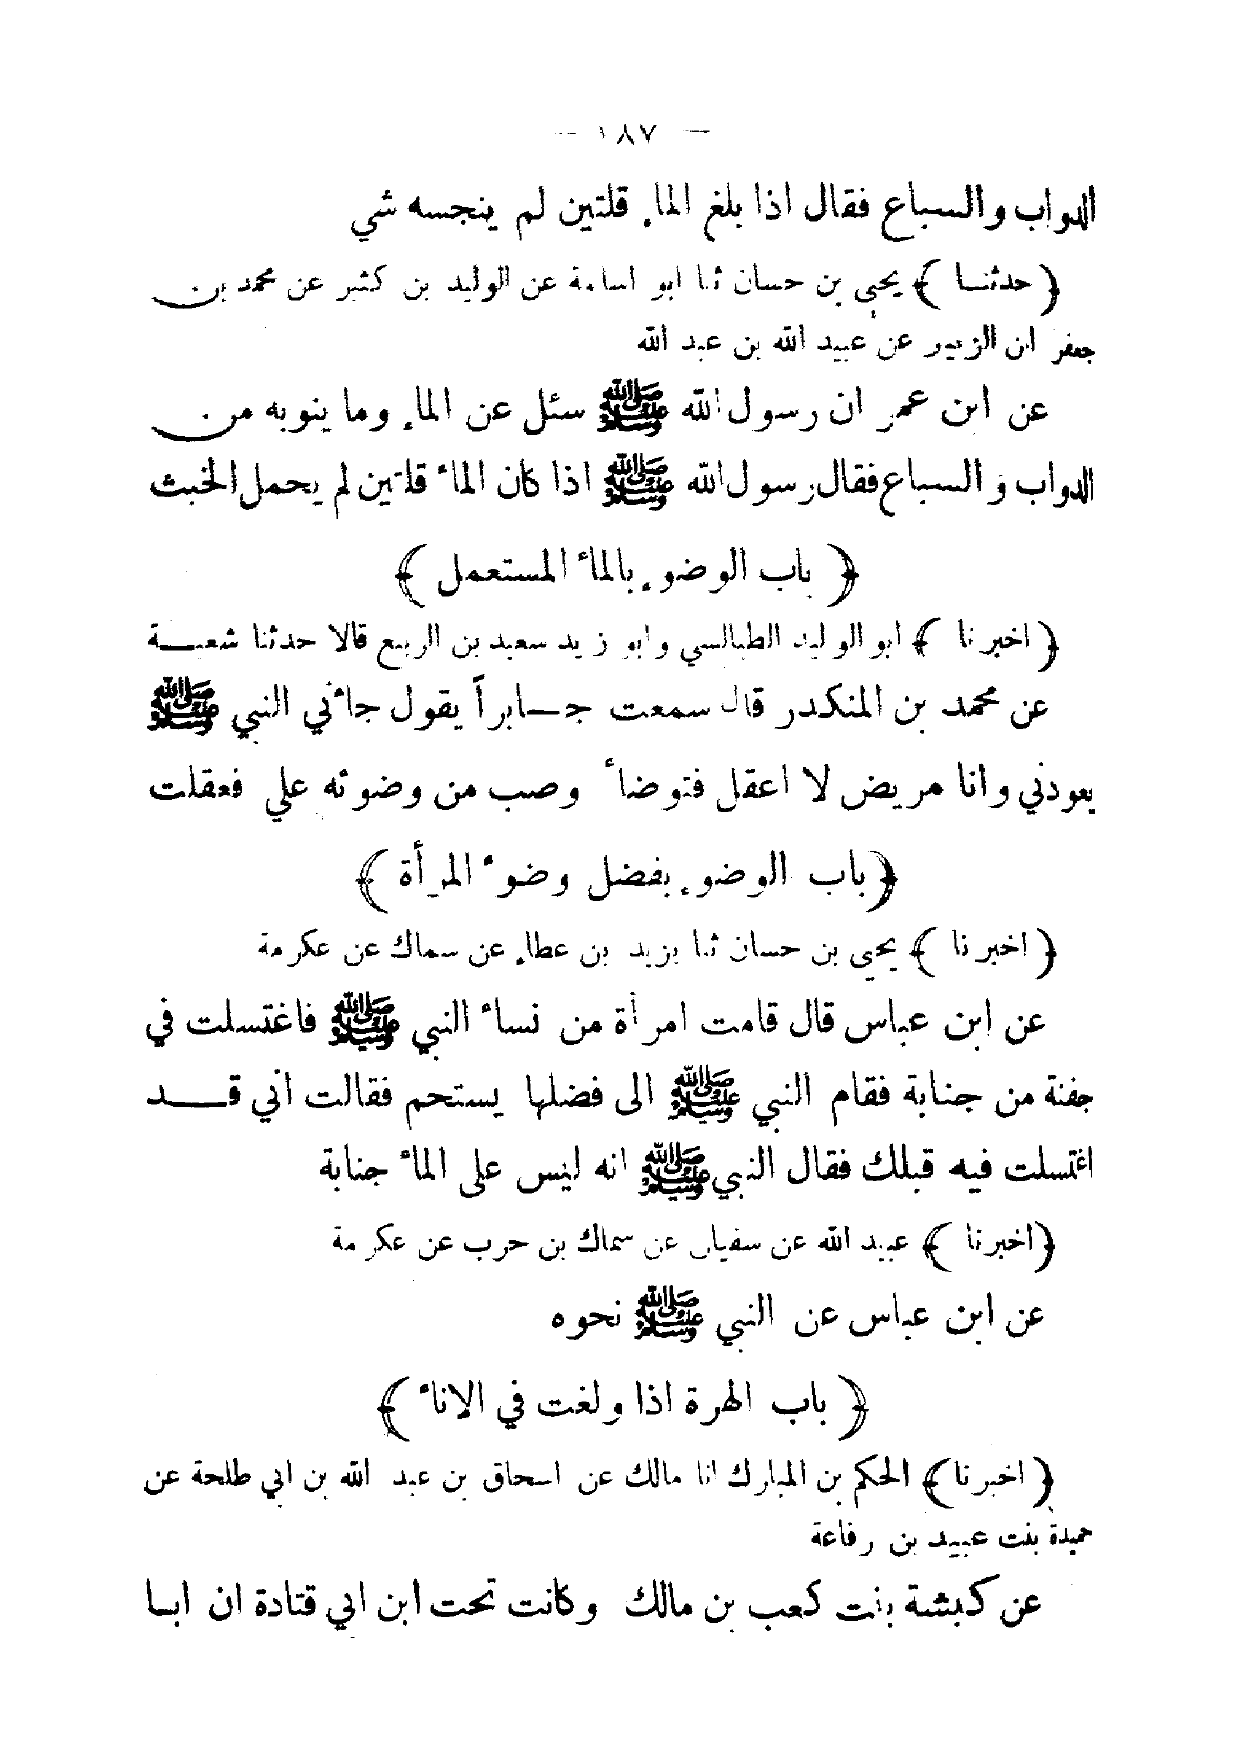 — ١٨٧ —
الدواب والسباع فقال اذا بلغ الماء قلتين لم ينجسه شي
﴿ حدثنا ﴾ يحيى بن حسان ثنا ابو اسامة عن الوليد بن كثير عن محمد بن
جعفر ابن الزبير عن عبيد الله بن عبد الله
عن ابن عمر ان رسول الله ﷺ سئل عن الماء وما ينوبه من
الدواب والسباع فقال رسول الله ﷺ اذا كان الماء قلتين لم يحمل الخبث
﴿ باب الوضوء بالماء المستعمل ﴾
﴿ اخبرنا ﴾ ابو الوليد الطيالسي وابو زيد سعيد بن الربيع قالا حدثنا شعبة
عن محمد بن المنكدر قال سمعت جابراً يقول جاءني النبي ﷺ
يعودني وانا مريض لا اعقل فتوضأ وصب من وضوئه علي فعقلت
﴿ باب الوضوء بفضل وضوء المرأة ﴾
﴿ اخبرنا ﴾ يحيى بن حسان ثنا يزيد بن عطاء عن سماك عن عكرمة
عن ابن عباس قال قامت امرأة من نساء النبي ﷺ فاغتسلت في
جفنة من جنابة فقام النبي ﷺ الى فضلها يستحم فقالت اني قد
اغتسلت فيه قبلك فقال النبي ﷺ انه ليس على الماء جنابة
﴿ اخبرنا ﴾ عبيد الله عن سفيان عن سماك بن حرب عن عكرمة
عن ابن عباس عن النبي ﷺ نحوه
﴿ باب الهرة اذا ولغت في الاناء ﴾
﴿ اخبرنا ﴾ الحكم بن المبارك انا مالك عن اسحاق بن عبد الله بن ابي طلحة عن
حميدة بنت عبيد بن رفاعة
عن كبشة بنت كعب بن مالك وكانت تحت ابن ابي قتادة ان ابا